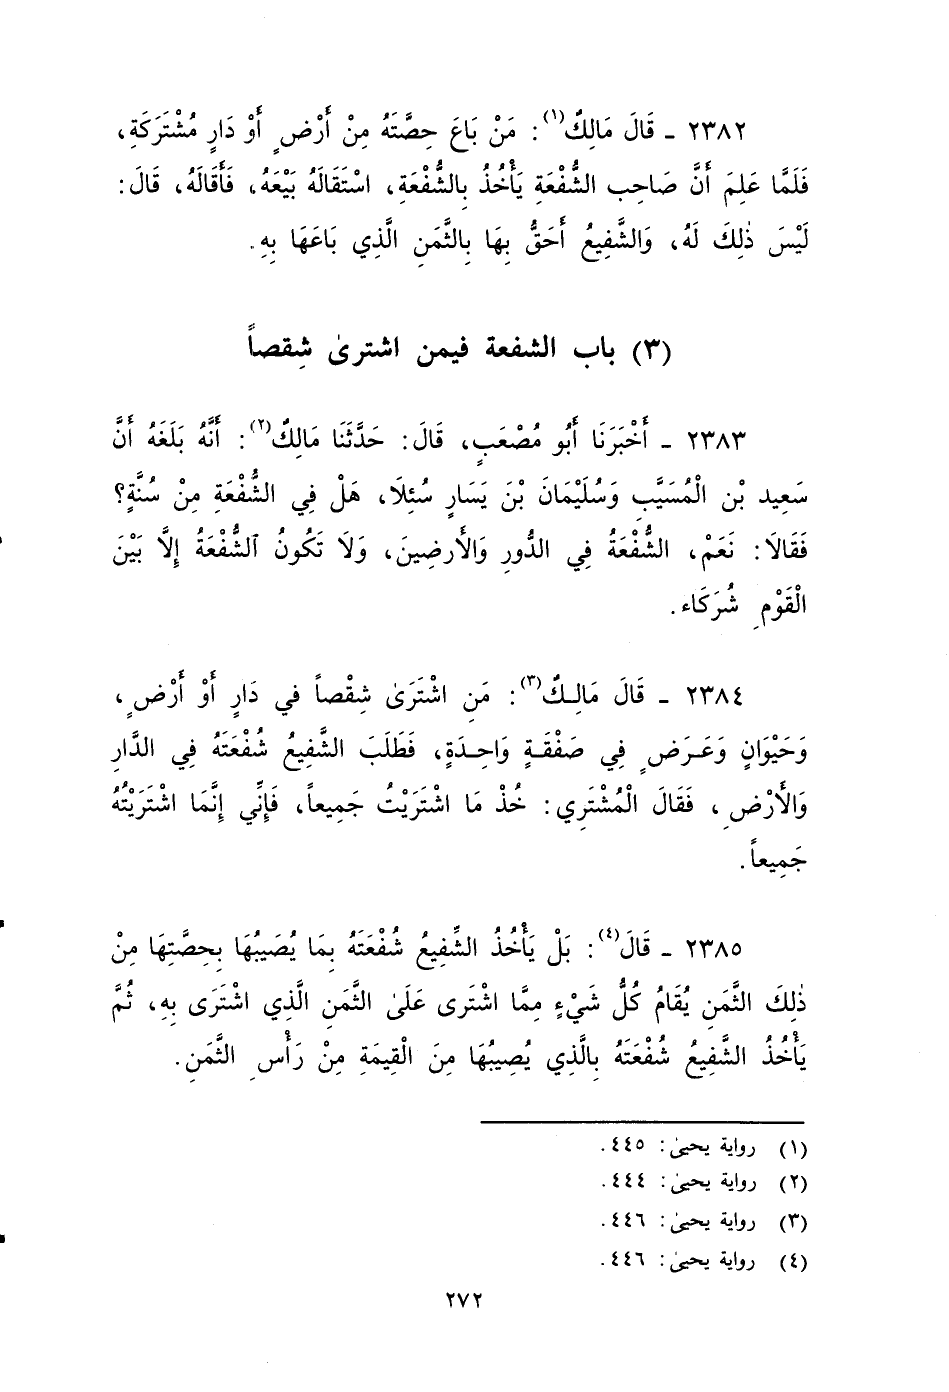 ٢٣٨٢ ـ قَالَ مَالِكٌ(١): مَنْ بَاعَ حِصَّتَهُ مِنْ أَرْضٍ أَوْ دَارٍ مُشْتَرَكَةٍ،
فَلَمَّا عَلِمَ أَنَّ صَاحِبَ الشُّفْعَةِ يَأْخُذُ بِالشُّفْعَةِ، اسْتَقَالَهُ بَيْعَهُ، فَأَقَالَهُ، قَالَ:
لَيْسَ ذٰلِكَ لَهُ، وَالشَّفِيعُ أَحَقُّ بِهَا بِالثَّمَنِ الَّذِي بَاعَهَا بِهِ.
(٣) باب الشفعة فيمن اشترىٰ شِقصاً
٢٣٨٣ ـ أَخْبَرَنَا أَبُو مُصْعَبٍ، قَالَ: حَدَّثَنَا مَالِكٌ(٢): أَنَّهُ بَلَغَهُ أَنَّ
سَعِيد بْنِ الْمُسَيَّبِ وَسُلَيْمَانَ بْنَ يَسَارٍ سُئِلَا، هَلْ فِي الشُّفْعَةِ مِنْ سُنَّةٍ؟
فَقَالَا: نَعَمْ، الشُّفْعَةُ فِي الدُّورِ وَالأَرضِينَ، وَلَا تَكُونُ ٱلشُّفْعَةُ إِلَّا بَيْنَ
الْقَوْمِ شُرَكَاء.
٢٣٨٤ ـ قَالَ مَالِكٌ(٣): مَنِ اشْتَرَىٰ شِقْصاً في دَارٍ أَوْ أَرْضٍ،
وَحَيْوَانٍ وَعَرَضٍ فِي صَفْقَةٍ وَاحِدَةٍ، فَطَلَبَ الشَّفِيعُ شُفْعَتَهُ فِي الدَّارِ
وَالأَرْضِ، فَقَالَ الْمُشْتَرِي: خُذْ مَا اشْتَرَيْتُ جَمِيعاً، فَإِنِّي إِنَّمَا اشْتَرَيْتُهُ
جَمِيعاً.
٢٣٨٥ ـ قَالَ(٤): بَلْ يَأْخُذُ الشَّفِيعُ شُفْعَتَهُ بِمَا يُصَيبُهَا بِحِصَّتِهَا مِنْ
ذٰلِكَ الثَّمَنِ يُقَامُ كُلُّ شَيْءٍ مِمَّا اشْتَرى عَلَىٰ الثَّمَنِ الَّذِي اشْتَرَى بِهِ، ثُمَّ
يَأْخُذُ الشَّفِيعُ شُفْعَتَهُ بِالَّذِي يُصِيبُهَا مِنَ الْقِيمَةِ مِنْ رَأْسِ الثَّمَنِ.
(١) رواية يحيىٰ: ٤٤٥.
(٢) رواية يحيىٰ: ٤٤٤.
(٣) رواية يحيىٰ: ٤٤٦.
(٤) رواية يحيىٰ: ٤٤٦.
٢٧٢